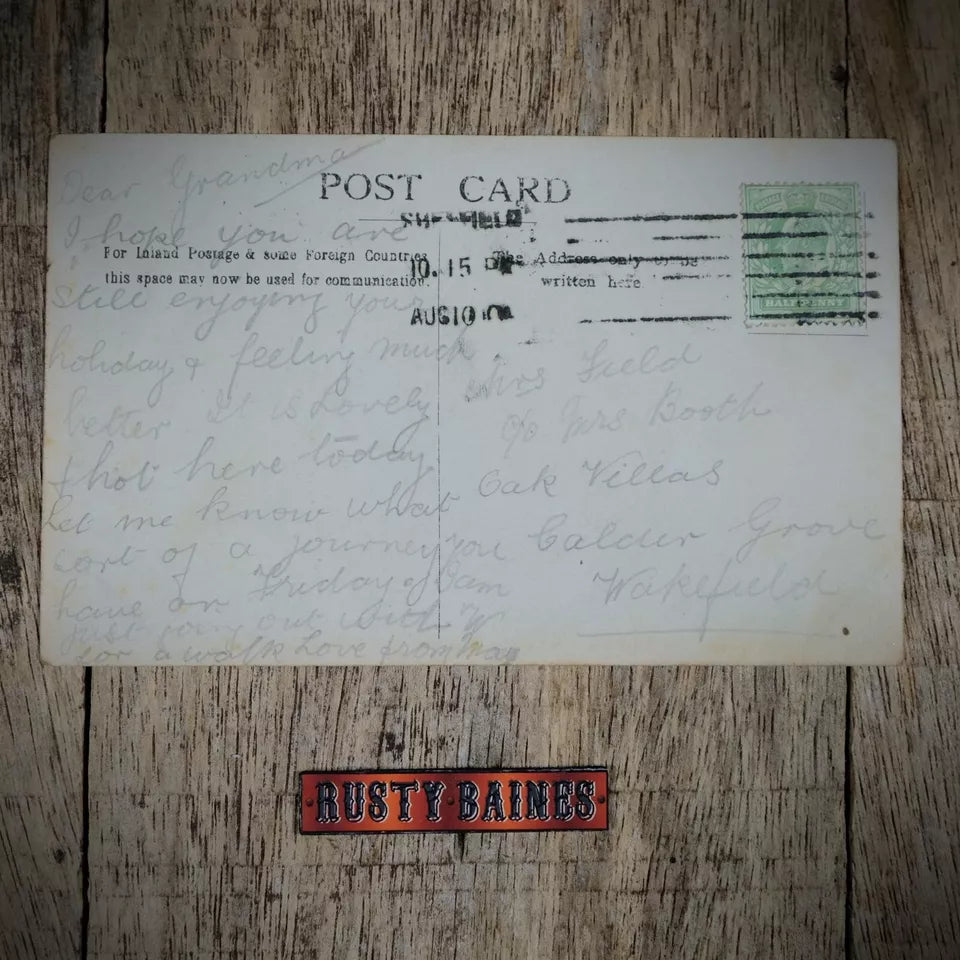 POST CARD
SHEFFIELD
10.15
AUG 10
For Inland Postage & some Foreign Countries
this space may now be used for communication.
The Address only to be
written here
HALFPENNY
Dear Grandma
I hope you are
still enjoying your
holiday & feeling much
better. It is lovely
& hot here today
Let me know what
sort of a journey you
have on Friday. I am
just going out with
for a walk Love from
Mrs Field
c/o Mrs Booth
Oak Villas
Calder Grove
Wakefield
RUSTY BAINES